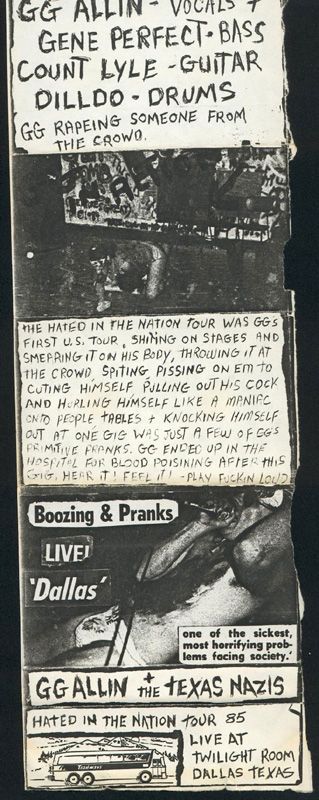 GG ALLIN - VOCALS +
GENE PERFECT - BASS
COUNT LYLE - GUITAR
DILLDO - DRUMS
GG RAPEING SOMEONE FROM
THE CROWD.
THE HATED IN THE NATION TOUR WAS GGS
FIRST U.S. TOUR, SHITING ON STAGES AND
SMEARING IT ON HIS BODY, THROWING IT AT
THE CROWD, SPITING, PISSING ON EM TO
CUTING HIMSELF PULLING OUT HIS COCK
AND HURLING HIMSELF LIKE A MANIAC
ONTO PEOPLE TABLES + KNOCKING HIMSELF
OUT AT ONE GIG WAS JUST A FEW OF GGS
PRIMITIVE PRANKS. GG ENDED UP IN THE
HOSPITAL FOR BLOOD POISINING AFTER THIS
GIG. HEAR IT! FEEL IT! - PLAY FUCKIN LOUD
Boozing & Pranks
LIVE!
'Dallas'
one of the sickest,
most horrifying prob-
lems facing society.'
GG ALLIN + THE TEXAS NAZIS
HATED IN THE NATION TOUR 85
LIVE AT
TWILIGHT ROOM
DALLAS TEXAS